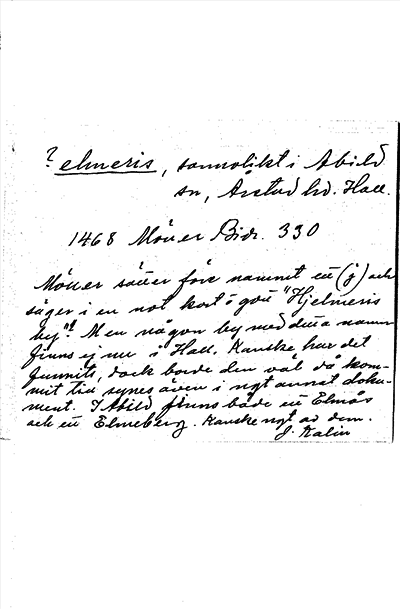 ? elmeris, sannolikt i Abild
sn, Årstad hd. Hall.
1468 Möller Bidr. 330
Möller sätter före namnet ett (j) och
säger i en not kort o. gott "Hjelmeris
by"? Men någon by med detta namn
finns ej nu i Hall. Kanske har det
funnits, dock borde den väl då kom-
mit till synes även i ngt annat doku-
ment. I Abild finns både ett Elmås
och ett Elmeberg. Kanske ngt av dem.
J. Kalin